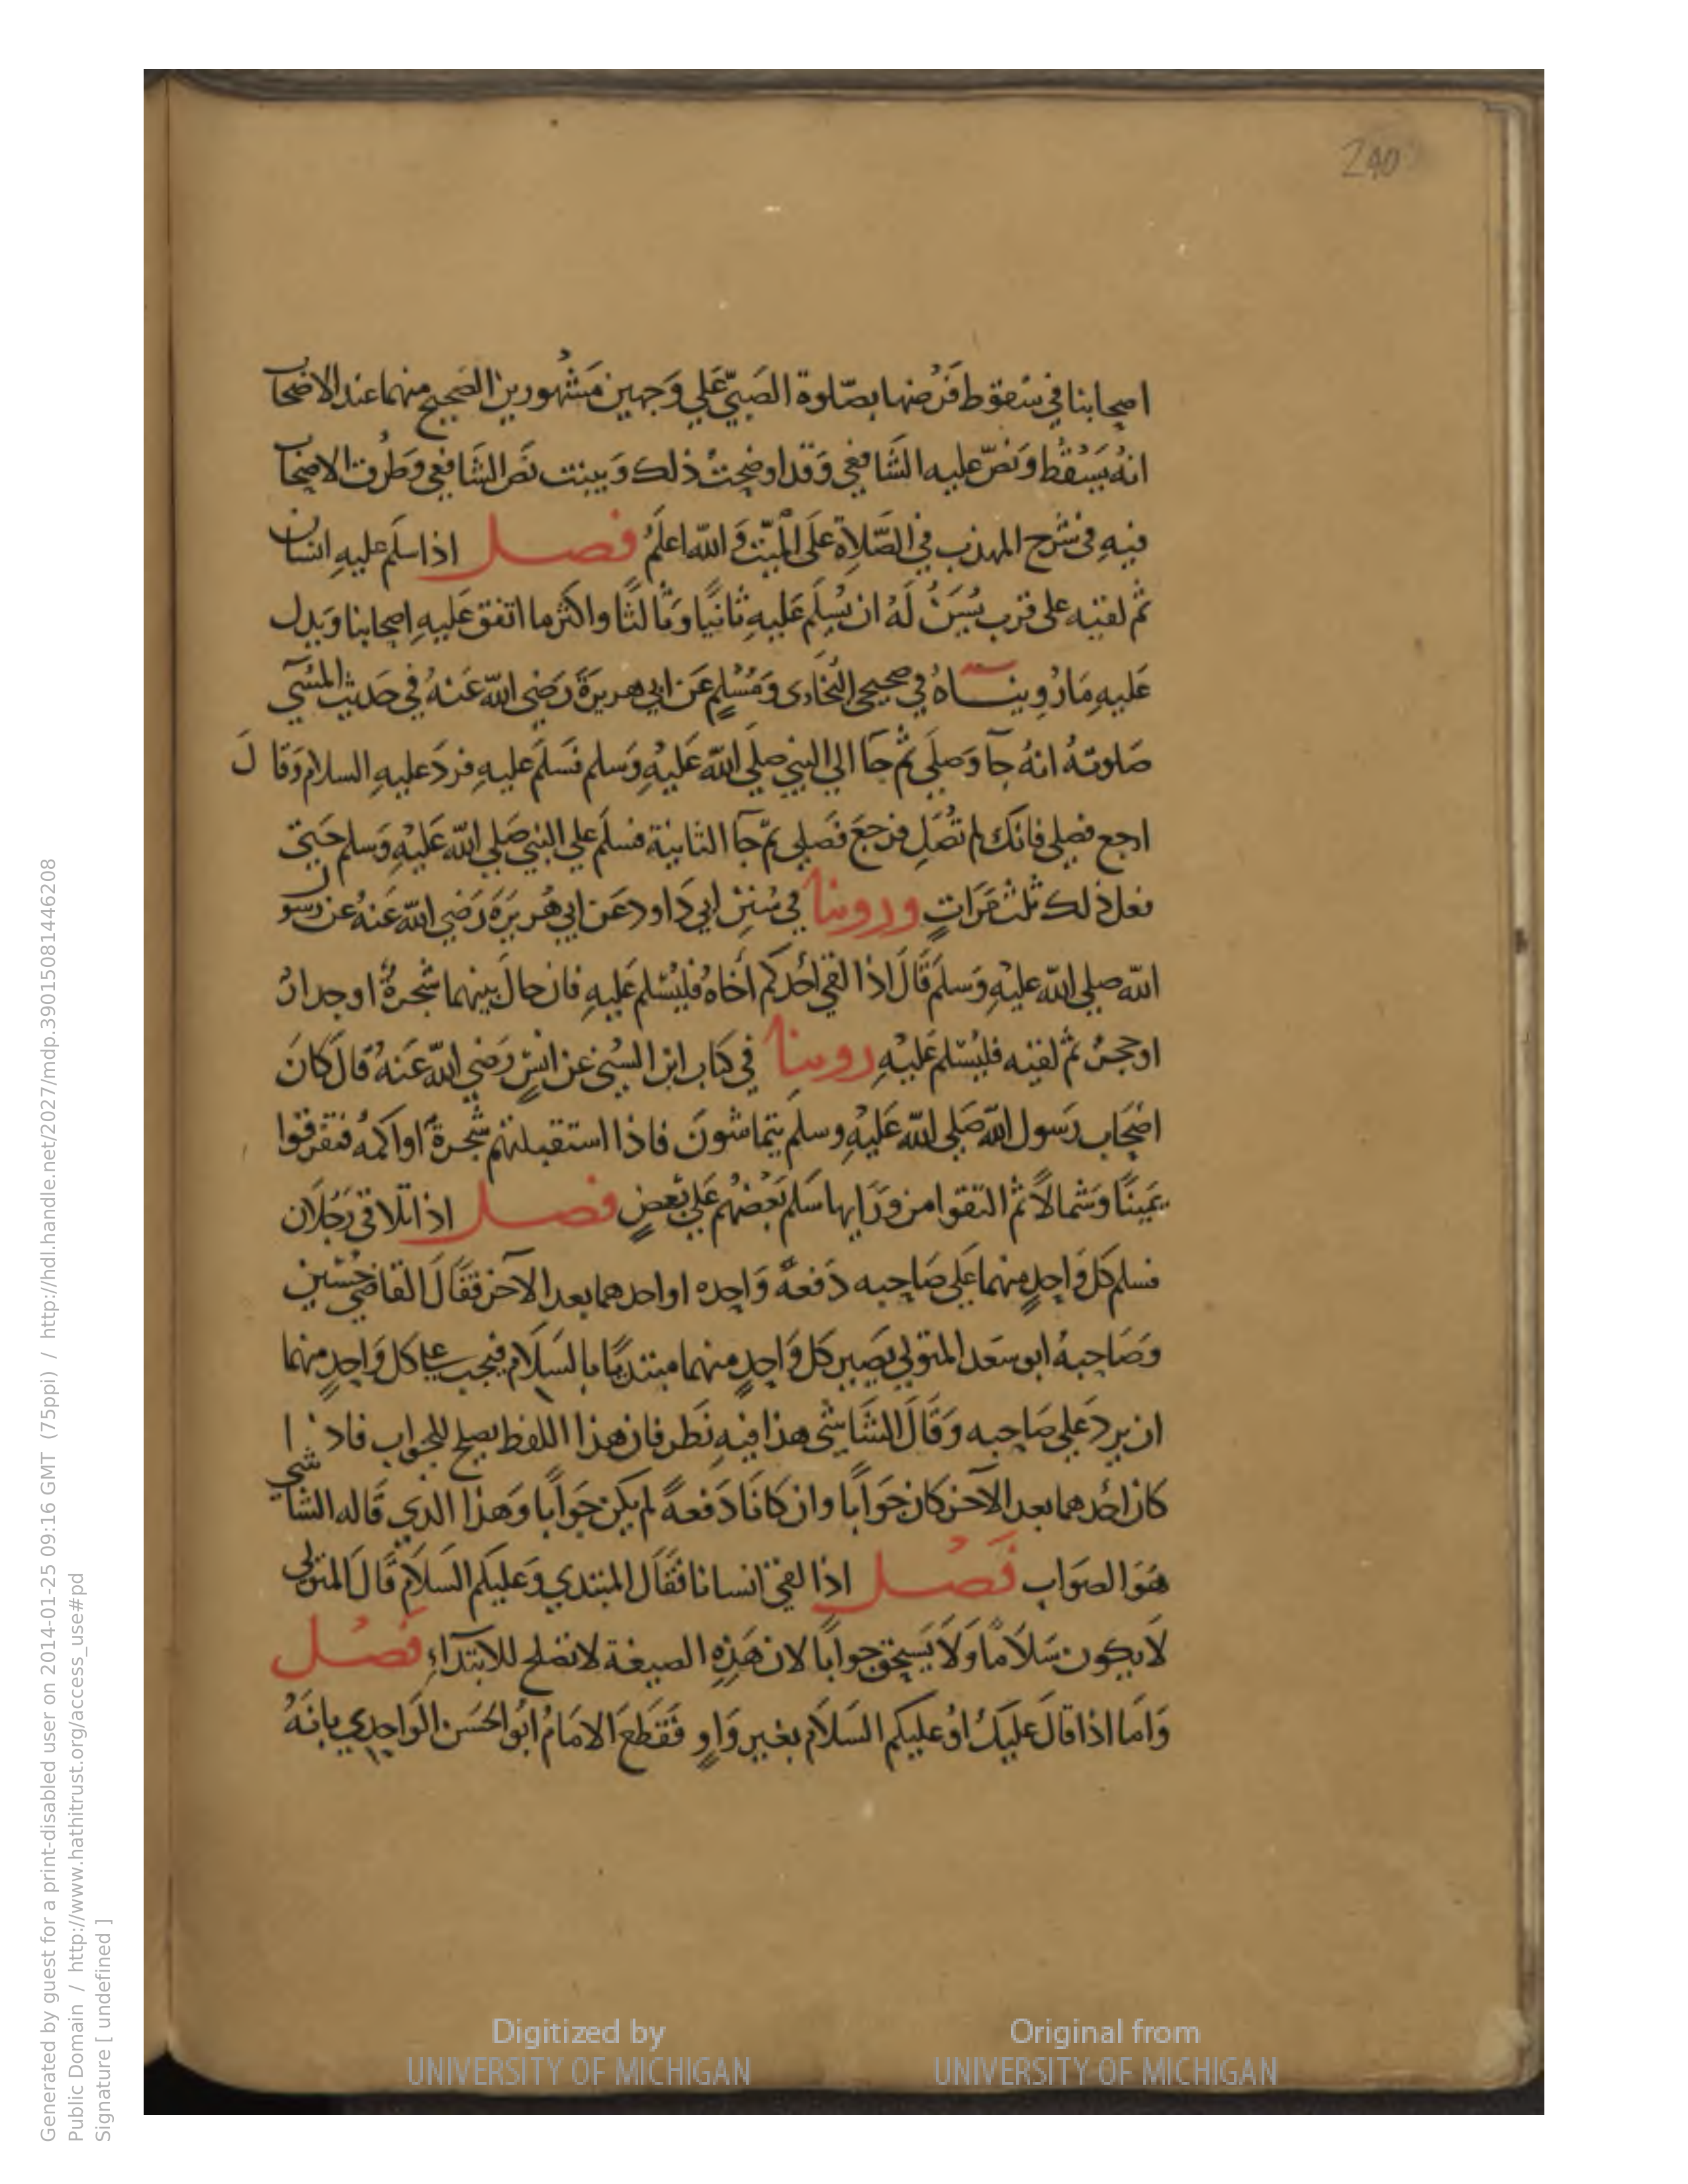 240
اصحابنا في سقوط فَرْضها بصَلوة الصَبيّ عَلي وَجهين مَشهورين الصحيح منهما عند الاصحاب
انهُ يَسْقُط وَنصّ عليه الشَافعي وَقد اوضحتُ ذلك وَبينت نَص الشَافعي وَطُرق الاصحاب
فيهِ في شرح المهذب في الصَّلاةِ عَلَى الميّت وَالله اعلمُ فصل اذا سلَم عليهِ انسان
ثم لقيه على قرب يُسَنُ لَهُ ان يُسلِم عَليهِ ثانيًا وَثالثًا واكثر ما اتفق عَليهِ اصحابنا وَيدل
عَليهِ مَا رُوينـاهُ في صحيحي البُخاري وَمُسْلمٍ عَن ابي هريرَةَ رَضي الله عَنهُ في حَديث المُسَي
صَلوتهُ انهُ جآ وَصلَي ثم جَآ الي النبي صلَي الله عَليْهِ وَسَلم فسَلم عليهِ فردَ عليهِ السلام وَقا لَ
ارجع فصلي فانك لم تُصَلِ فرجعَ فصَلي ثم جآ الثانية فسلَم علي النبي صَلي الله عَليْهِ وَسلم حَتي
فعل ذلك ثلث مَرَاتٍ وروينا في سُنَن ابي دَاود عَن ابي هُريرَة رَضي الله عَنهُ عن رسول
الله صلي الله عليْهِ وَسلمَ قَالَ اذا لقي احَدكم اَخاهُ فليُسْلم عَليهِ فان حالَ بينهما شجرةٌ او جدارٌ
او حجرٌ ثم لقيه فليُسْلم عَليْهِ روينا في كتاب ابن السُني عَن انسٍ رَضي الله عَنهُ قالَ كانَ
اصْحَاب رَسول الله صَلي الله عَليْهِ وسلم يتماشونَ فاذا استقبلتهم شجَرة اَو اكمهُ فتفرقوا
يَمينًا وَشمالاً ثم التقوا من وَرَايها سَلم بَعْضهُم عَلي بَعضٍ فصل اذا تلاقى رَجُلَان
فسلم كل وَاحدٍ منهما عَلي صَاحبه دَفعةً وَاحده او احدهما بعد الآخر فقَالَ القاضي حُسَين
وَصَاحبهُ ابو سَعد المتولي يَصير كل وَاحدٍ منهما مبتديًا بالسَلام فيجب على كل وَاحدٍ منهما
ان يردَ عَلي صَاحبه وَقَالَ الشَاشي هذا فيهِ نَظر فان هذا اللفظ يصلح للجواب فاذ ا
كان احَدهما بعد الآخر كان جوَابًا وان كانَا دَفعةً لم يكن جَوَابًا وَهذا الذي قَاله الشاشي
هوَ الصَوَاب فَصل اذا لقي انسانا فقَال المبتدي وَعليكم السَلَام قَالَ المتولي
لَا يكون سَلَامًا وَلَا يَستحق جوابًا لان هَذِهِ الصيغة لا تصْلح للابتدَآءِ فصل
وَامَا اذا قالَ عليكَ اوْ عليكم السَلَام بغير وَاوٍ فقَطعَ الامَامُ ابُو الحَسَن الوَاحِدي بانهُ
Generated by guest for a print-disabled user on 2014-01-25 09:16 GMT (75ppi) / http://hdl.handle.net/2027/mdp.39015081446208
Public Domain / http://www.hathitrust.org/access_use#pd
Signature [ undefined ]
Digitized by
UNIVERSITY OF MICHIGAN
Original from
UNIVERSITY OF MICHIGAN